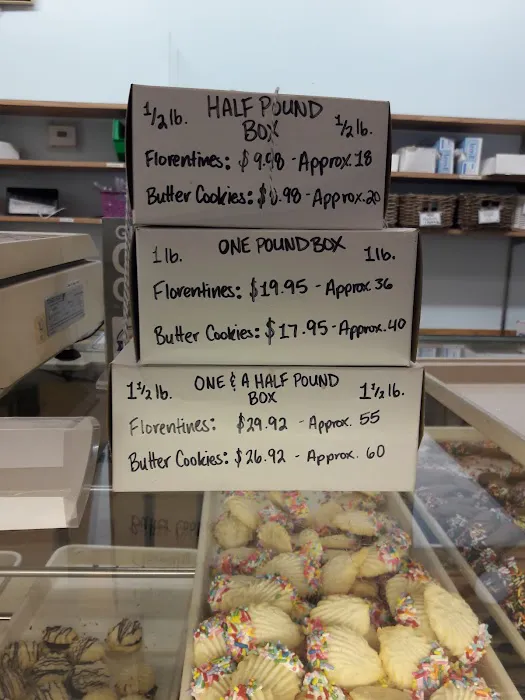 1/2 lb. HALF POUND 1/2 lb.
BOX
Florentines: $9.98 - Approx. 18
Butter Cookies: .98 - Approx. 20
1 lb. ONE POUND BOX 1 lb.
Florentines: $19.95 - Approx. 36
Butter Cookies: $17.95 - Approx. 40
1 1/2 lb. ONE & A HALF POUND 1 1/2 lb.
BOX
Florentines: $29.92 - Approx. 55
Butter Cookies: $26.92 - Approx. 60